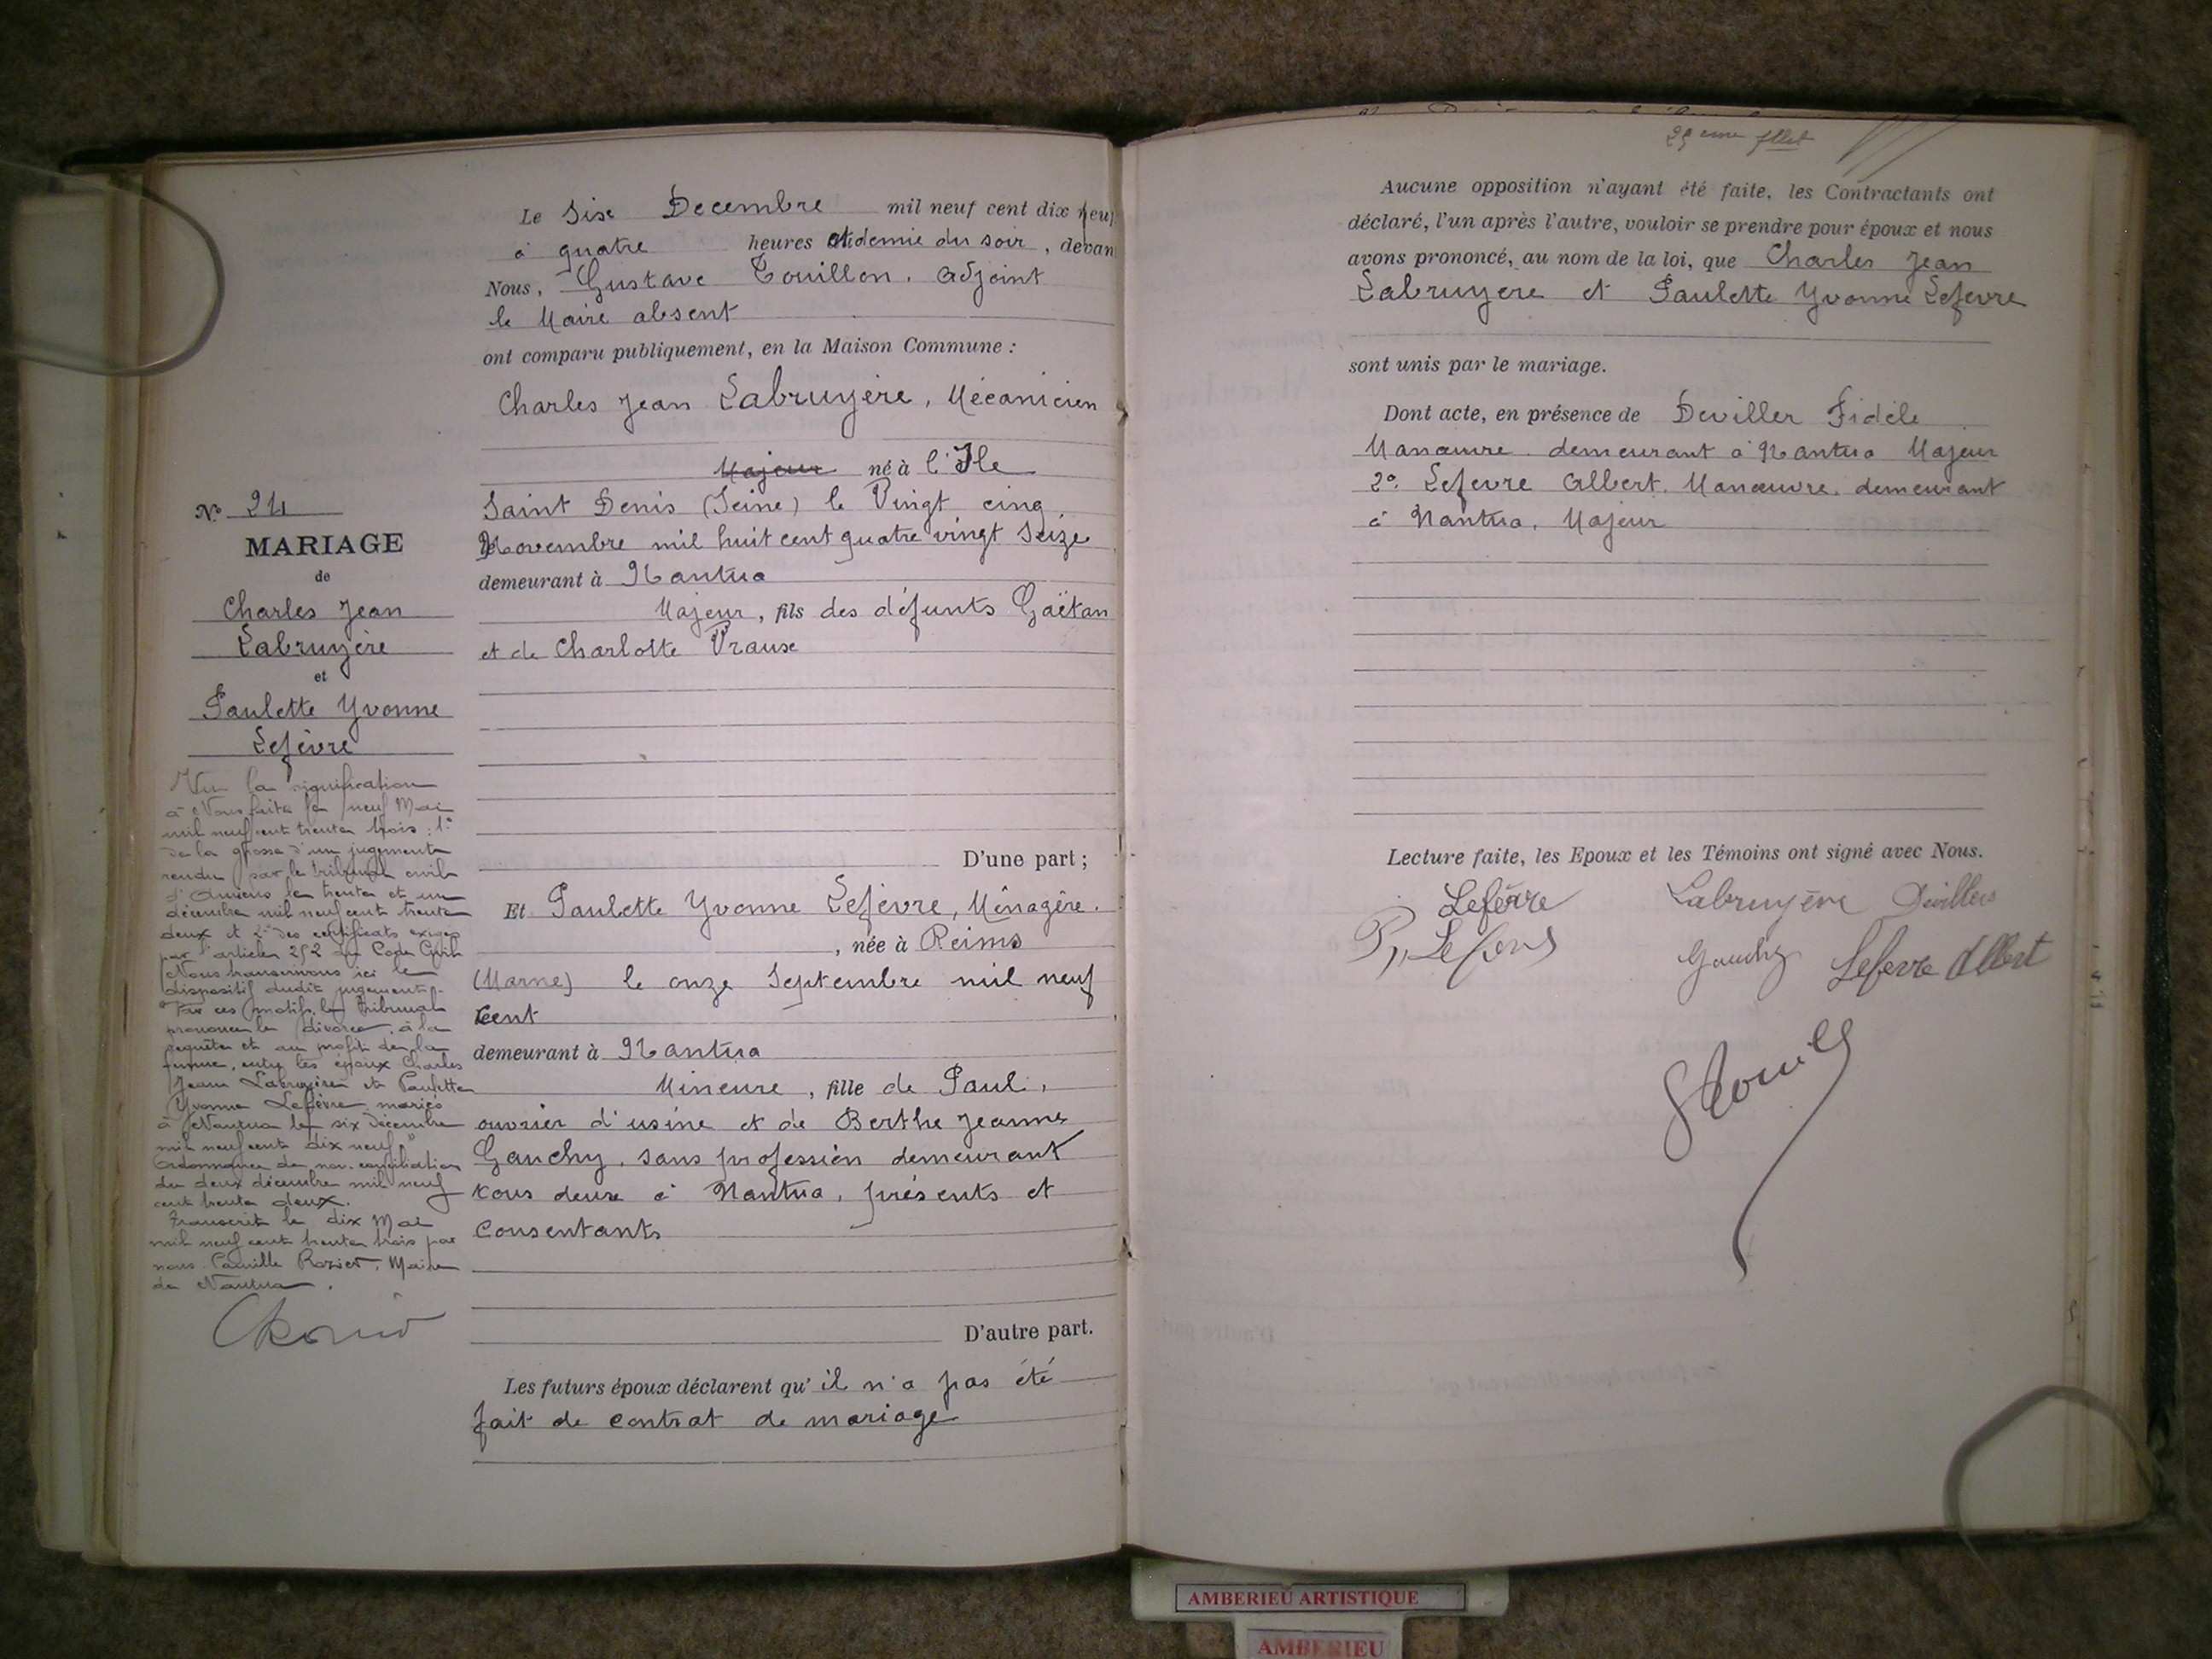 Le Six Decembre mil neuf cent dix neuf
à quatre heures et demie du soir, devan
Nous, Gustave Touillon, Adjoint
le Maire absent
ont comparu publiquement, en la Maison Commune :
Charles Jean Labruyère, Mécanicien
Majeur né à l'Ile
Saint Denis (Seine) le Vingt cinq
Novembre mil huit cent quatre vingt Seize
demeurant à Nantua
Majeur, fils des défunts Gaëtan
et de Charlotte Prause
D'une part ;
Et Paulette Yvonne Lefèvre, Ménagère.
, née à Reims
(Marne) le onze Septembre mil neuf
cent
demeurant à Nantua
Mineure, fille de Paul,
ouvrier d'usine et de Berthe Jeanne
Gauchy, sans profession demeurant
tous deux à Nantua, présents et
consentants
D'autre part.
Les futurs époux déclarent qu'il n'a pas été
fait de contrat de mariage
No 24
MARIAGE
de
Charles Jean
Labruyère
et
Paulette Yvonne
Lefèvre
Vu la signification
à Nous faite le neuf Mai
mil neuf cent trente trois : 1°
de la grosse d'un jugement
rendu par le tribunal civil
d'Amiens le trente et un
décembre mil neuf cent trente
deux et 2° des certificats exigés
par l'article 252 du Code Civil
Nous transcrivons ici le
dispositif dudit jugement.
"Par ces motifs, le Tribunal
prononce le divorce, à la
requête et au profit de la
femme, entre les époux Charles
Jean Labruyère et Paulette
Yvonne Lefèvre mariés
à Nantua le six Décembre
mil neuf cent dix neuf"
Ordonnance de non-conciliation
du deux décembre mil neuf
cent trente deux.
Transcrit le dix Mai
mil neuf cent trente trois par
nous Camille Rozier, Maire
de Nantua.
29 eme fllet
Aucune opposition n'ayant été faite, les Contractants ont
déclaré, l'un après l'autre, vouloir se prendre pour époux et nous
avons prononcé, au nom de la loi, que Charles Jean
Labruyere et Paulette Yvonne Lefevre
sont unis par le mariage.
Dont acte, en présence de Deviller Fidèle
Manœuvre demeurant à Nantua Majeur
2° Lefevre Albert. Manœuvre. demeurant
à Nantua, Majeur
Lecture faite, les Epoux et les Témoins ont signé avec Nous.
Lefèvre Labruyère Devillers
Gauchy Lefevre Albert
AMBERIEU ARTISTIQUE
AMBERIEU